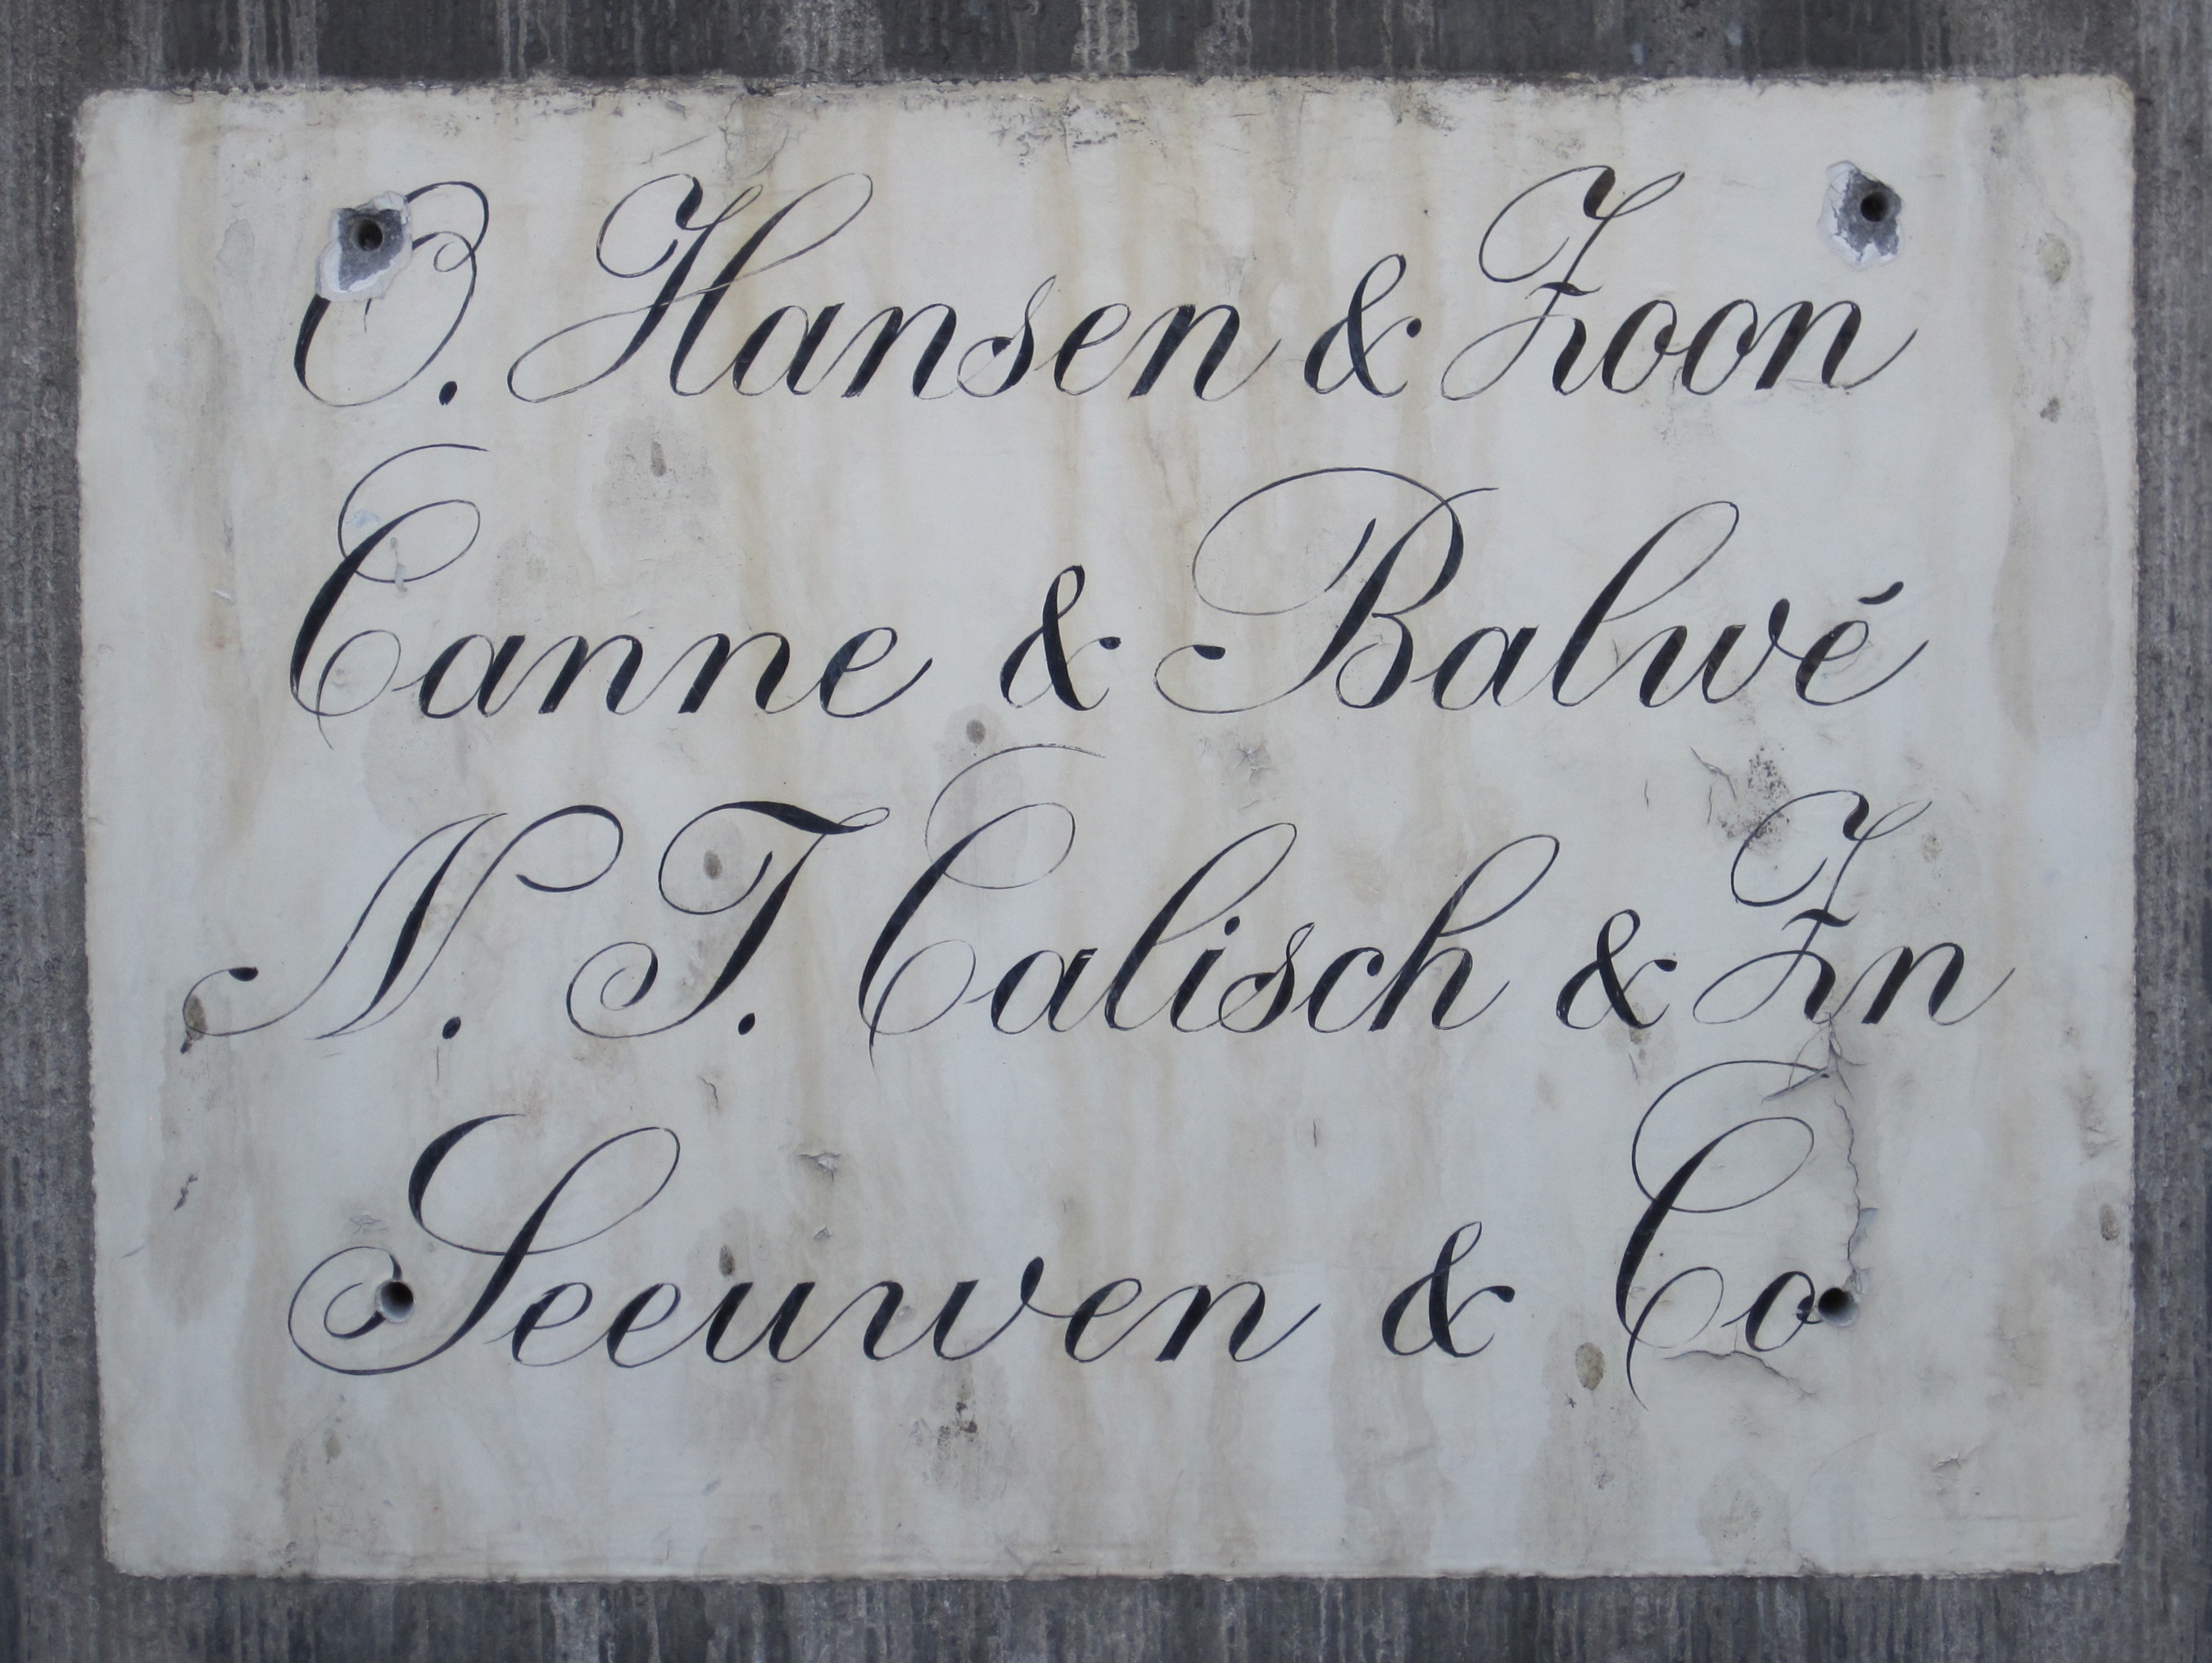 O. Hansen & Zoon
Canne & Balwé
N. T. Calisch & Zn
Seeuwen & Co